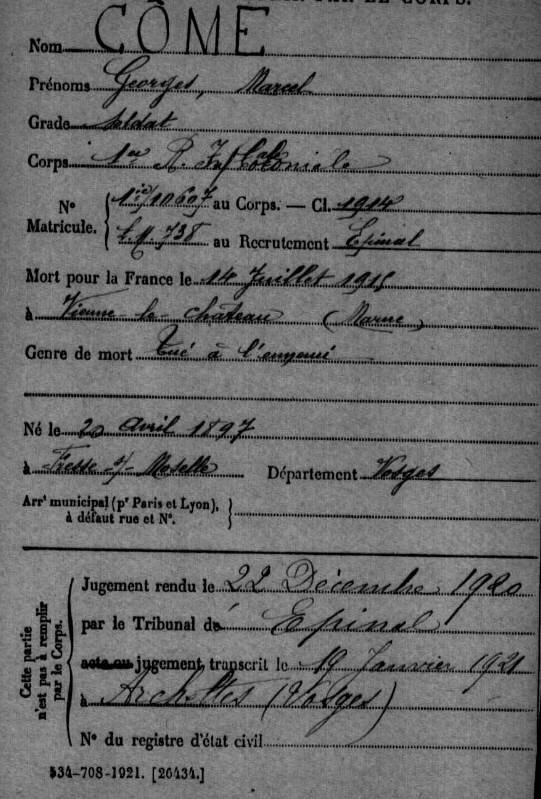 PAR LE CORPS.
Nom CÔME
Prénoms Georges, Marcel
Grade soldat
Corps 1er R. Inf Coloniale
N° Matricule. { 1c/10607 au Corps. — Cl. 1914
738 au Recrutement Epinal
Mort pour la France le 14 Juillet 1915
à Vienne-le-chateau (Marne)
Genre de mort tué à l'ennemi
Né le 20 Avril 1897
à Fresse s/ Moselle Département Vosges
Arrt municipal (pr Paris et Lyon),
à défaut rue et N°.
Cette partie
n'est pas à remplir
par le Corps.
Jugement rendu le 22 Décembre 1920
par le Tribunal de Epinal
acte ou jugement transcrit le 19 Janvier 1921
à Archettes (Vosges)
N° du registre d'état civil
534-708-1921. [26434.]